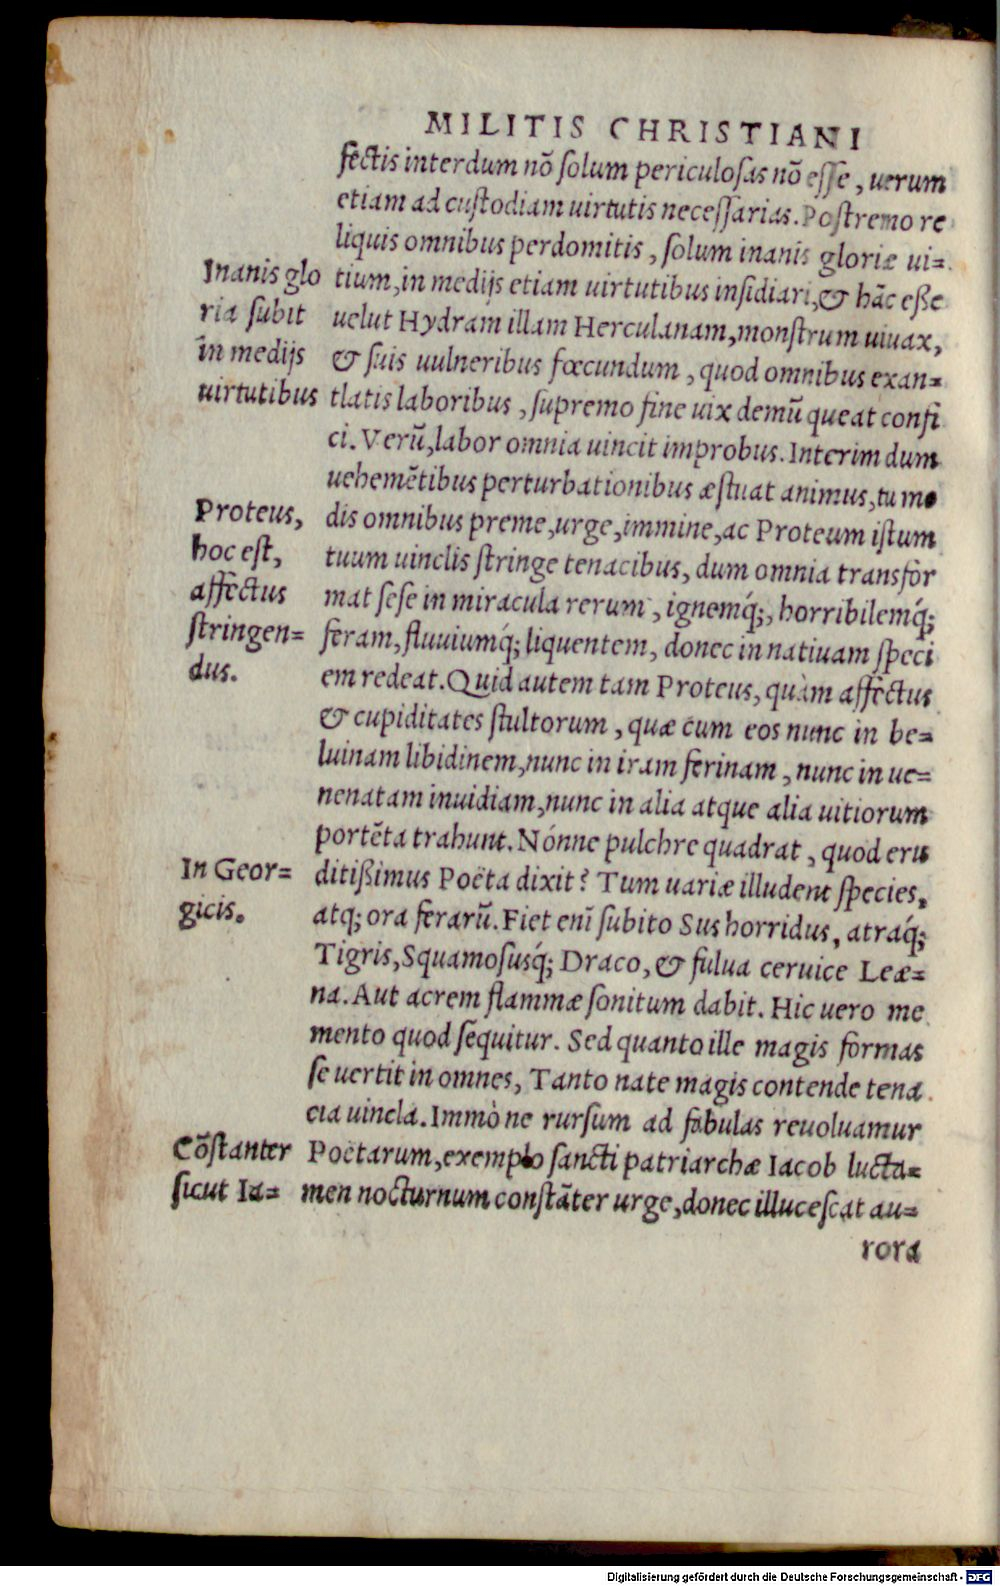 MILITIS CHRISTIANI
fectis interdum nõ ſolum periculoſas nõ eſſe, uerum
etiam ad cuſtodiam uirtutis neceſſarias. Poſtremo re
liquis omnibus perdomitis, ſolum inanis gloriæ ui=
tium, in medijs etiam uirtutibus inſidiari, & hãc eße
uelut Hydram illam Herculanam, monſtrum uiuax,
& ſuis uulneribus fœcundum, quod omnibus exan=
tlatis laboribus, ſupremo fine uix demũ queat confi
ci. Verũ, labor omnia uincit improbus. Interim dum
uehemẽtibus perturbationibus æſtuat animus, tu mo
dis omnibus preme, urge, immine, ac Proteum iſtum
tuum uinclis ſtringe tenacibus, dum omnia transfor
mat ſeſe in miracula rerum, ignemq́;, horribilemq́;
feram, fluuiumq́; liquentem, donec in natiuam ſpeci
em redeat. Quid autem tam Proteus, quàm affectus
& cupiditates ſtultorum, quæ cum eos nunc in be=
luinam libidinem, nunc in iram ferinam, nunc in ue=
nenatam inuidiam, nunc in alia atque alia uitiorum
portẽta trahunt. Nónne pulchre quadrat, quod eru
ditißimus Poëta dixit? Tum uariæ illudent ſpecies,
atq; ora ferarũ. Fiet enĩ ſubito Sus horridus, atraq́;
Tigris, Squamoſusq́; Draco, & fulua ceruice Leæ=
na. Aut acrem flammæ ſonitum dabit. Hic uero me
mento quod ſequitur. Sed quanto ille magis formas
ſe uertit in omnes, Tanto nate magis contende tena
cia uincla. Immò ne rurſum ad fabulas reuoluamur
Poëtarum, exemplo ſancti patriarchæ Iacob lucta=
men nocturnum conſtãter urge, donec illuceſcat au=
rora
Inanis glo
ria ſubit
in medijs
uirtutibus
Proteus,
hoc eſt,
affectus
ſtringen=
dus.
In Geor=
gicis.
Cõſtanter
ſicut Ia=
Digitalisierung gefördert durch die Deutsche Forschungsgemeinschaft - DFG